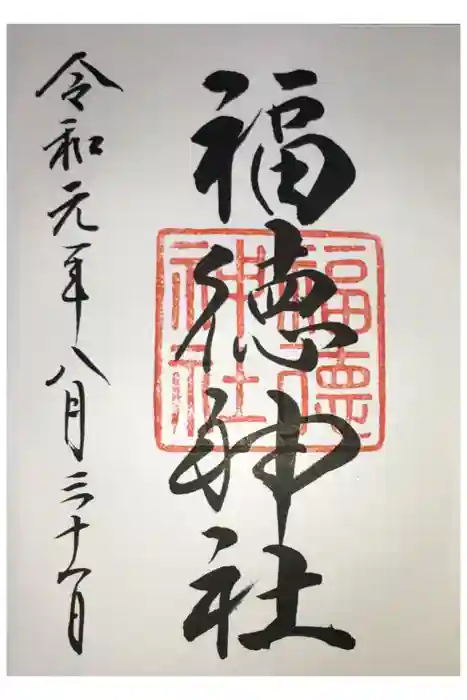 福徳神社
福徳
神社
令和元年八月三十一日